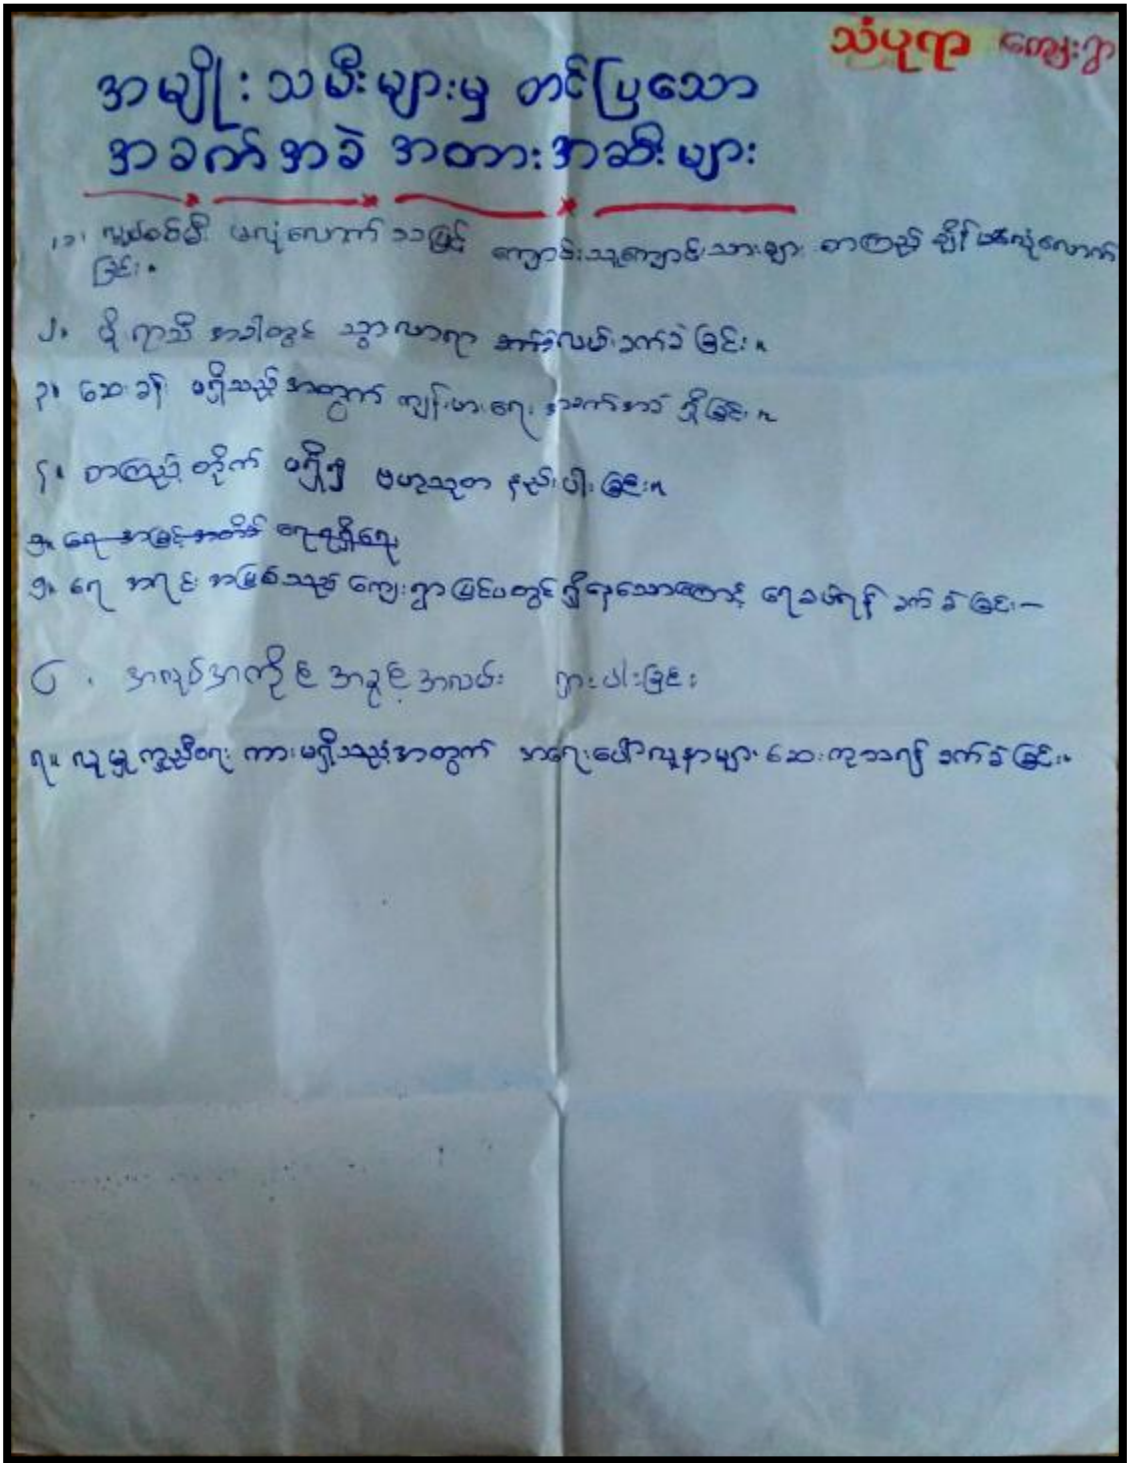 သံပုရာ ကျေးရွာ
အမျိုးသမီးများမှ တင်ပြသော
အခက်အခဲ အတားအဆီးများ
၁။ လျှပ်စစ်မီး မလုံလောက်သဖြင့် ကျောင်းသူကျောင်းသားများ စာကြည့်ချိန် မလုံလောက်
ခြင်း။
၂။ မိုးရာသီ အခါတွင် သွားလာရာ လမ်းခက်ခဲခြင်း။
၃။ ဆေးခန်း မရှိသည့်အတွက် ကျန်းမာရေး အခက်အခဲ ရှိခြင်း။
၄။ စာကြည့်တိုက် မရှိ၍ ဗဟုသုတ နည်းပါးခြင်း။
၅။ ရေ အမြင့်အတိုင်း ရေရရှိရေး
၅။ ရေ အရင်းအမြစ်သည် ကျေးရွာပြင်ပတွင် ရှိနေသောကြောင့် ရေခပ်ရန် ခက်ခဲခြင်း–
၆. အလုပ်အကိုင် အခွင့်အလမ်း ရှားပါးခြင်း
၇။ လူမှုကူညီရေး ကားမရှိသည့်အတွက် အရေးပေါ်လူနာများ ဆေးကုသရန် ခက်ခဲခြင်း။